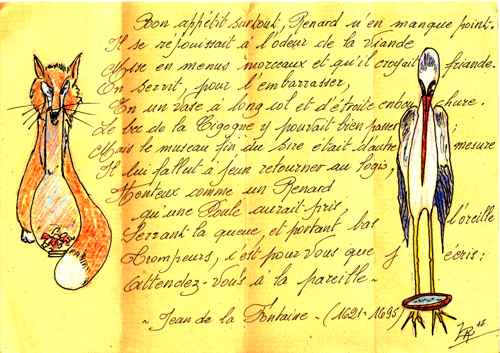 Bon appétit surtout, Renard n'en manque point.
Il se réjouissait à l'odeur de la viande
Mise en menus morceaux et qu'il croyait friande.
On servit, pour l'embarrasser,
En un vase à long col et d'étroite embouchure.
Le bec de la Cigogne y pouvait bien passer ;
Mais le museau fin du sire était d'autre mesure
Il lui fallut à jeun retourner au logis,
Honteux comme un Renard
qu'une Poule aurait pris
Serrant la queue, et portant bas l'oreille
Trompeurs, c'est pour vous que j'écris :
Attendez-vous à la pareille -
- Jean de la Fontaine - (1621-1695)